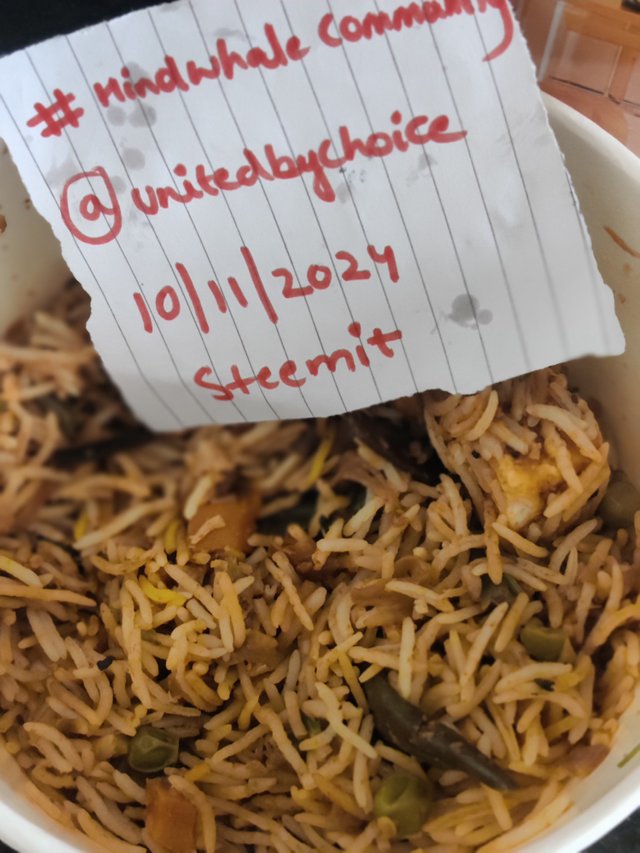 # Mindwhale Community
@unitedbychoice
10/11/2024
Steemit